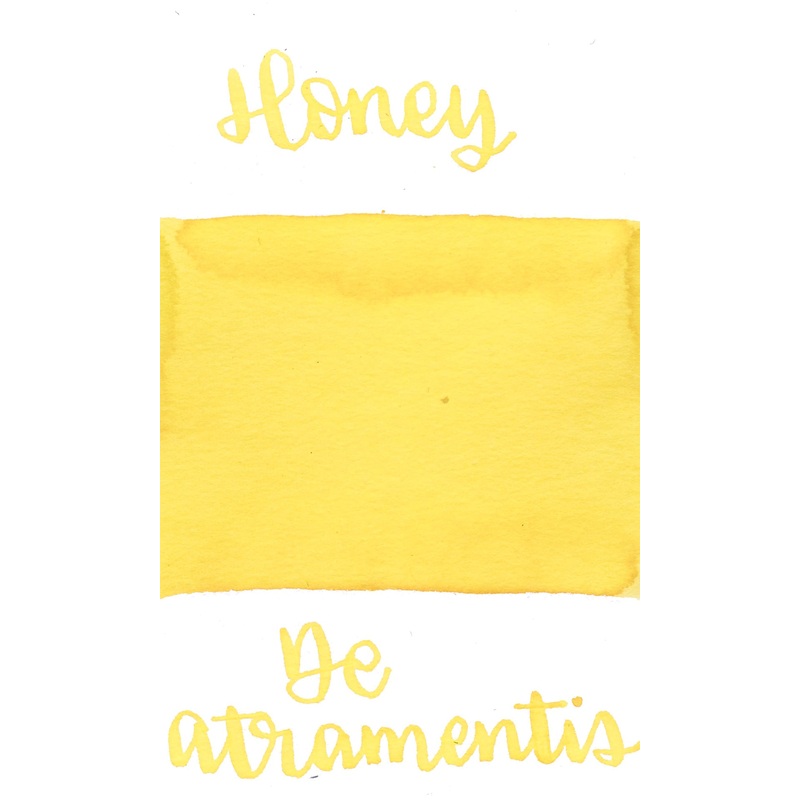 Honey
De
atramentis